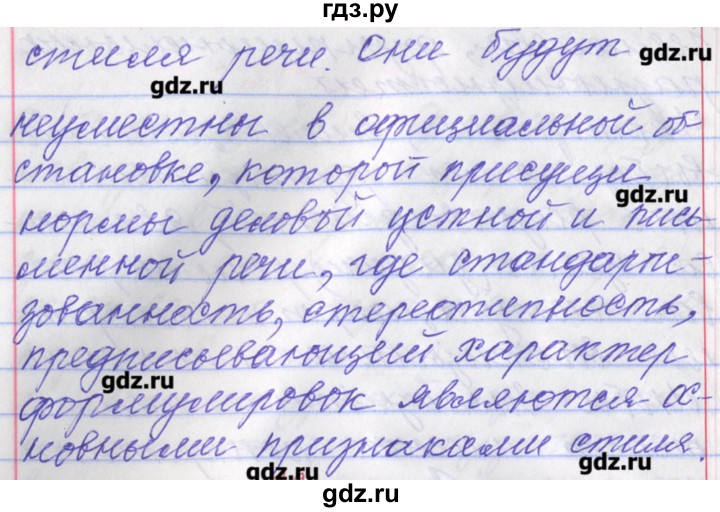 гдз.ру
стиля речи. Они будут
gdz.ru
gdz.ru
неуместны в официальной об-
становке, которой присущи
gdz.ru
нормы деловой устной и пись-
менной речи, где стандарти-
зованность, стереотипность,
предписывающий характер
gdz.ru
формулировок являются ос-
новными признаками стиля.
gdz.ru
gdz.ru
gdz.ru